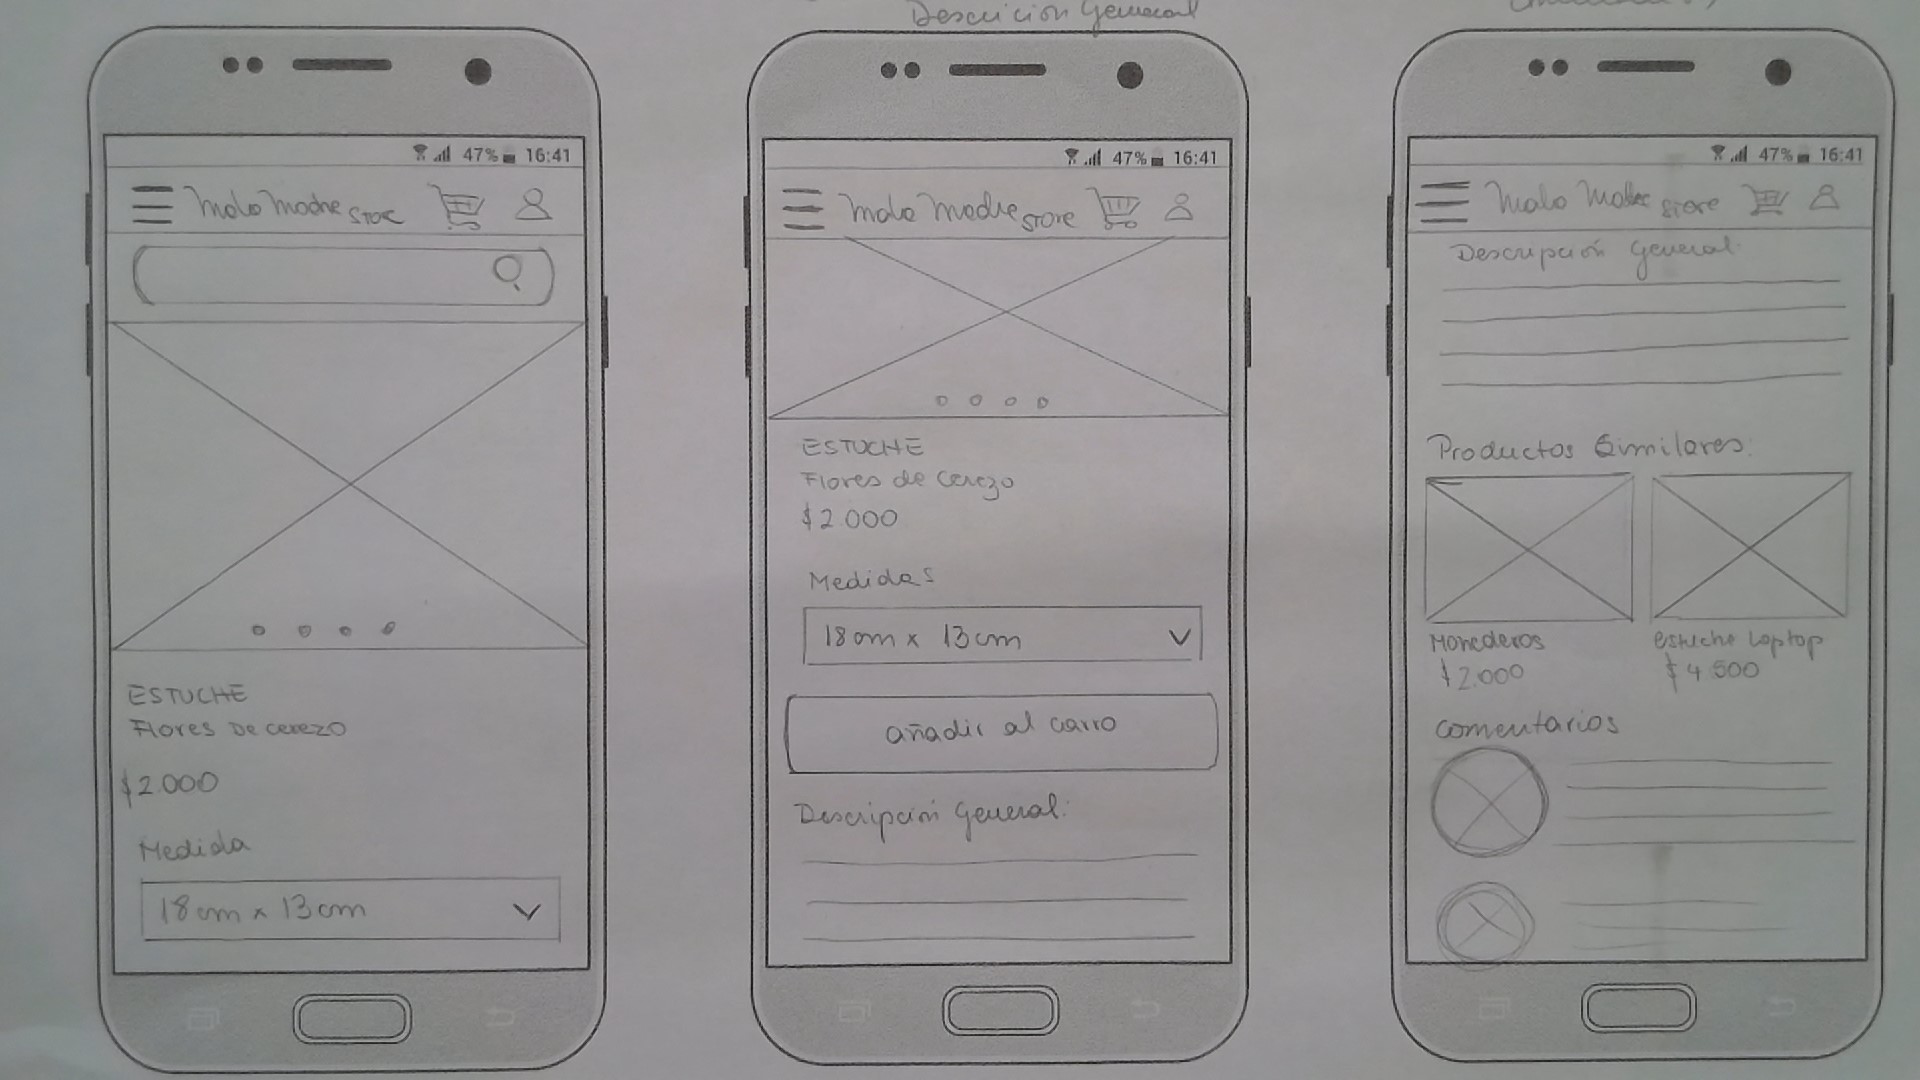 Descrición General
47% 16:41
Mala Madre STORE
ESTUCHE
Flores De cerezo
$2.000
Medida
18cm x 13cm
47% 16:41
Mala Madre STORE
ESTUCHE
Flores de cerezo
$2.000
Medidas
18cm x 13cm
añadir al carro
Descripción General:
47% 16:41
Mala Madre store
Descripción General:
Productos Similares:
Monederos
$2.000
estuche Laptop
$4.500
comentarios